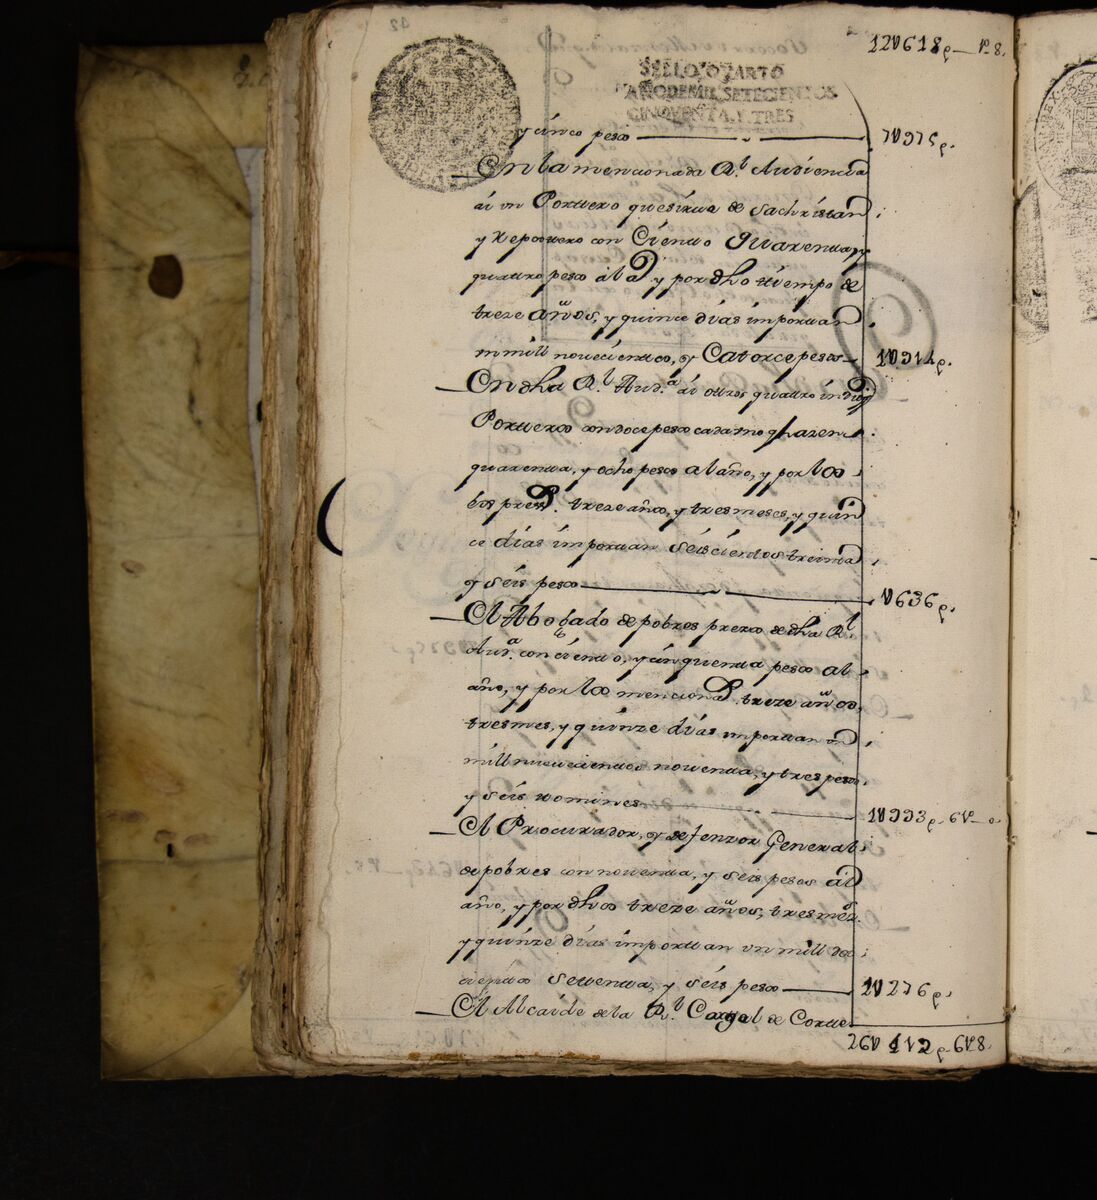 12V618p.__ V.8.
SELLO QVARTO
AÑO DE MIL SETECIENTOS
CINQVENTA, Y TRES
y cinco pesos
En la mencionada Rl. Audiencia
ai un Portero que sirve de Sachristan
y Repostero con Ciento quarenta, y
quatro pesos al a y por dho tiempo de
treze años, y quince dias importan
un mill novecientos, y Catorce pesos
1V914p.
En dha Rl. Auda. ai otros quatro indios
Porteros con doce pesos cada uno q hazen
quarenta, y ocho pesos al año, y por los
treze años, y tres meses, y quin
ce dias importan seiscientos treinta
y seis pesos
V636p.
Al Abogado de pobres prezos de dha Rl.
Auda. con ciento, y cinquenta pesos al
año, y por los mencionads. treze años,
tres mes, y quinze dias importan un
mill nuevecientos noventa, y tres pesos
y seis tomines
1V993p.6V__o
Al Procurador, y defenzor General
de pobres con noventa, y seis pesos al
año, y por dhos treze años, tres mes.
y quinze dias importan un mill dos
cientos setenta, y seis pesos
1V276p.
Al Alcaide de la Rl. Carzel de Corte
26V112p.6V.8.